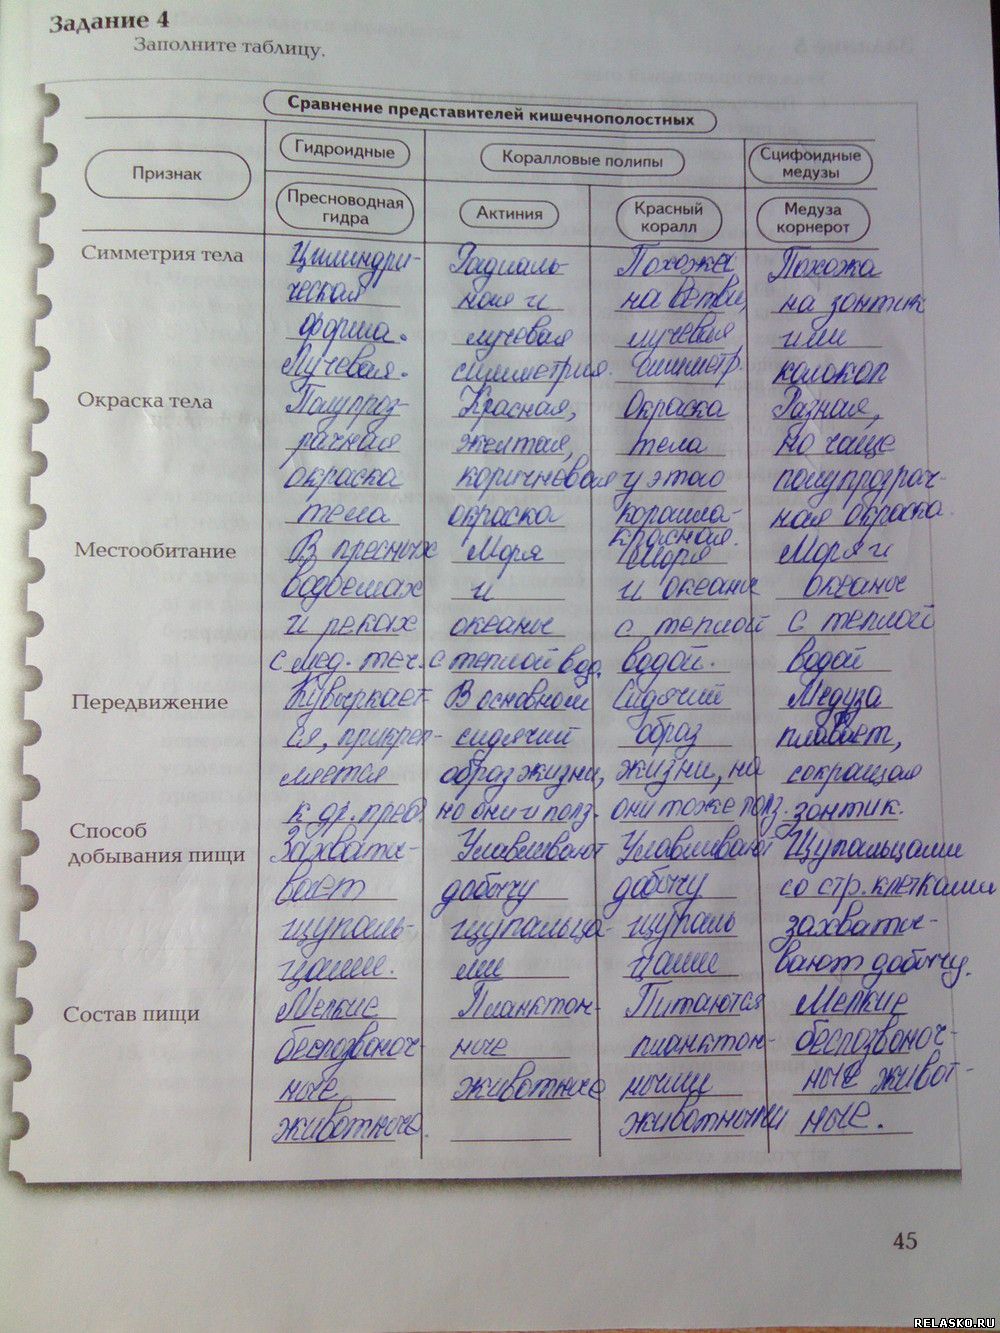 Задание 4
Заполните таблицу.
Сравнение представителей кишечнополостных
Признак
Гидроидные
Коралловые полипы
Сцифоидные
медузы
Пресноводная
гидра
Актиния
Красный
коралл
Медуза
корнерот
Симметрия тела
Цилиндри-
ческая
форма.
Лучевая.
Радиаль-
ная и
лучевая
симметрия.
Похожа
на ветви,
лучевая
симметр.
Похожа
на зонтик
или
колокол
Окраска тела
Полупроз-
рачная
окраска
тела
Красная,
желтая,
коричневая
окраска
Окраска
тела
у этого
коралла-
красная.
Разная,
но чаще
полупрозрач-
ная окраска.
Местообитание
В пресных
водоемах
и реках
с мед. теч.
Моря
и
океаны
с теплой вод.
Моря
и океаны
с теплой
водой.
Моря и
океаны
с теплой
водой
Передвижение
Кувыркает-
ся, прикреп-
ляется
к др.
В основном
сидячий
образ жизни,
но они и полз.
Сидячий
образ
жизни, но
они тоже полз.
Медуза
плавает,
сокращая
зонтик.
Способ
добывания пищи
Захваты-
вает
щупаль-
цами.
Улавливают
добычу
щупальца-
ми
Улавливают
добычу
щупаль
цами
Щупальцами
со стр. клетками
захваты-
вают добычу.
Состав пищи
Мелкие
беспозвоноч-
ные
животные.
Планктон-
ные
животные
Питаются
планктон-
ными
животными
Мелкие
беспозвоноч-
ные живот-
ные.
45
RELASKO.RU